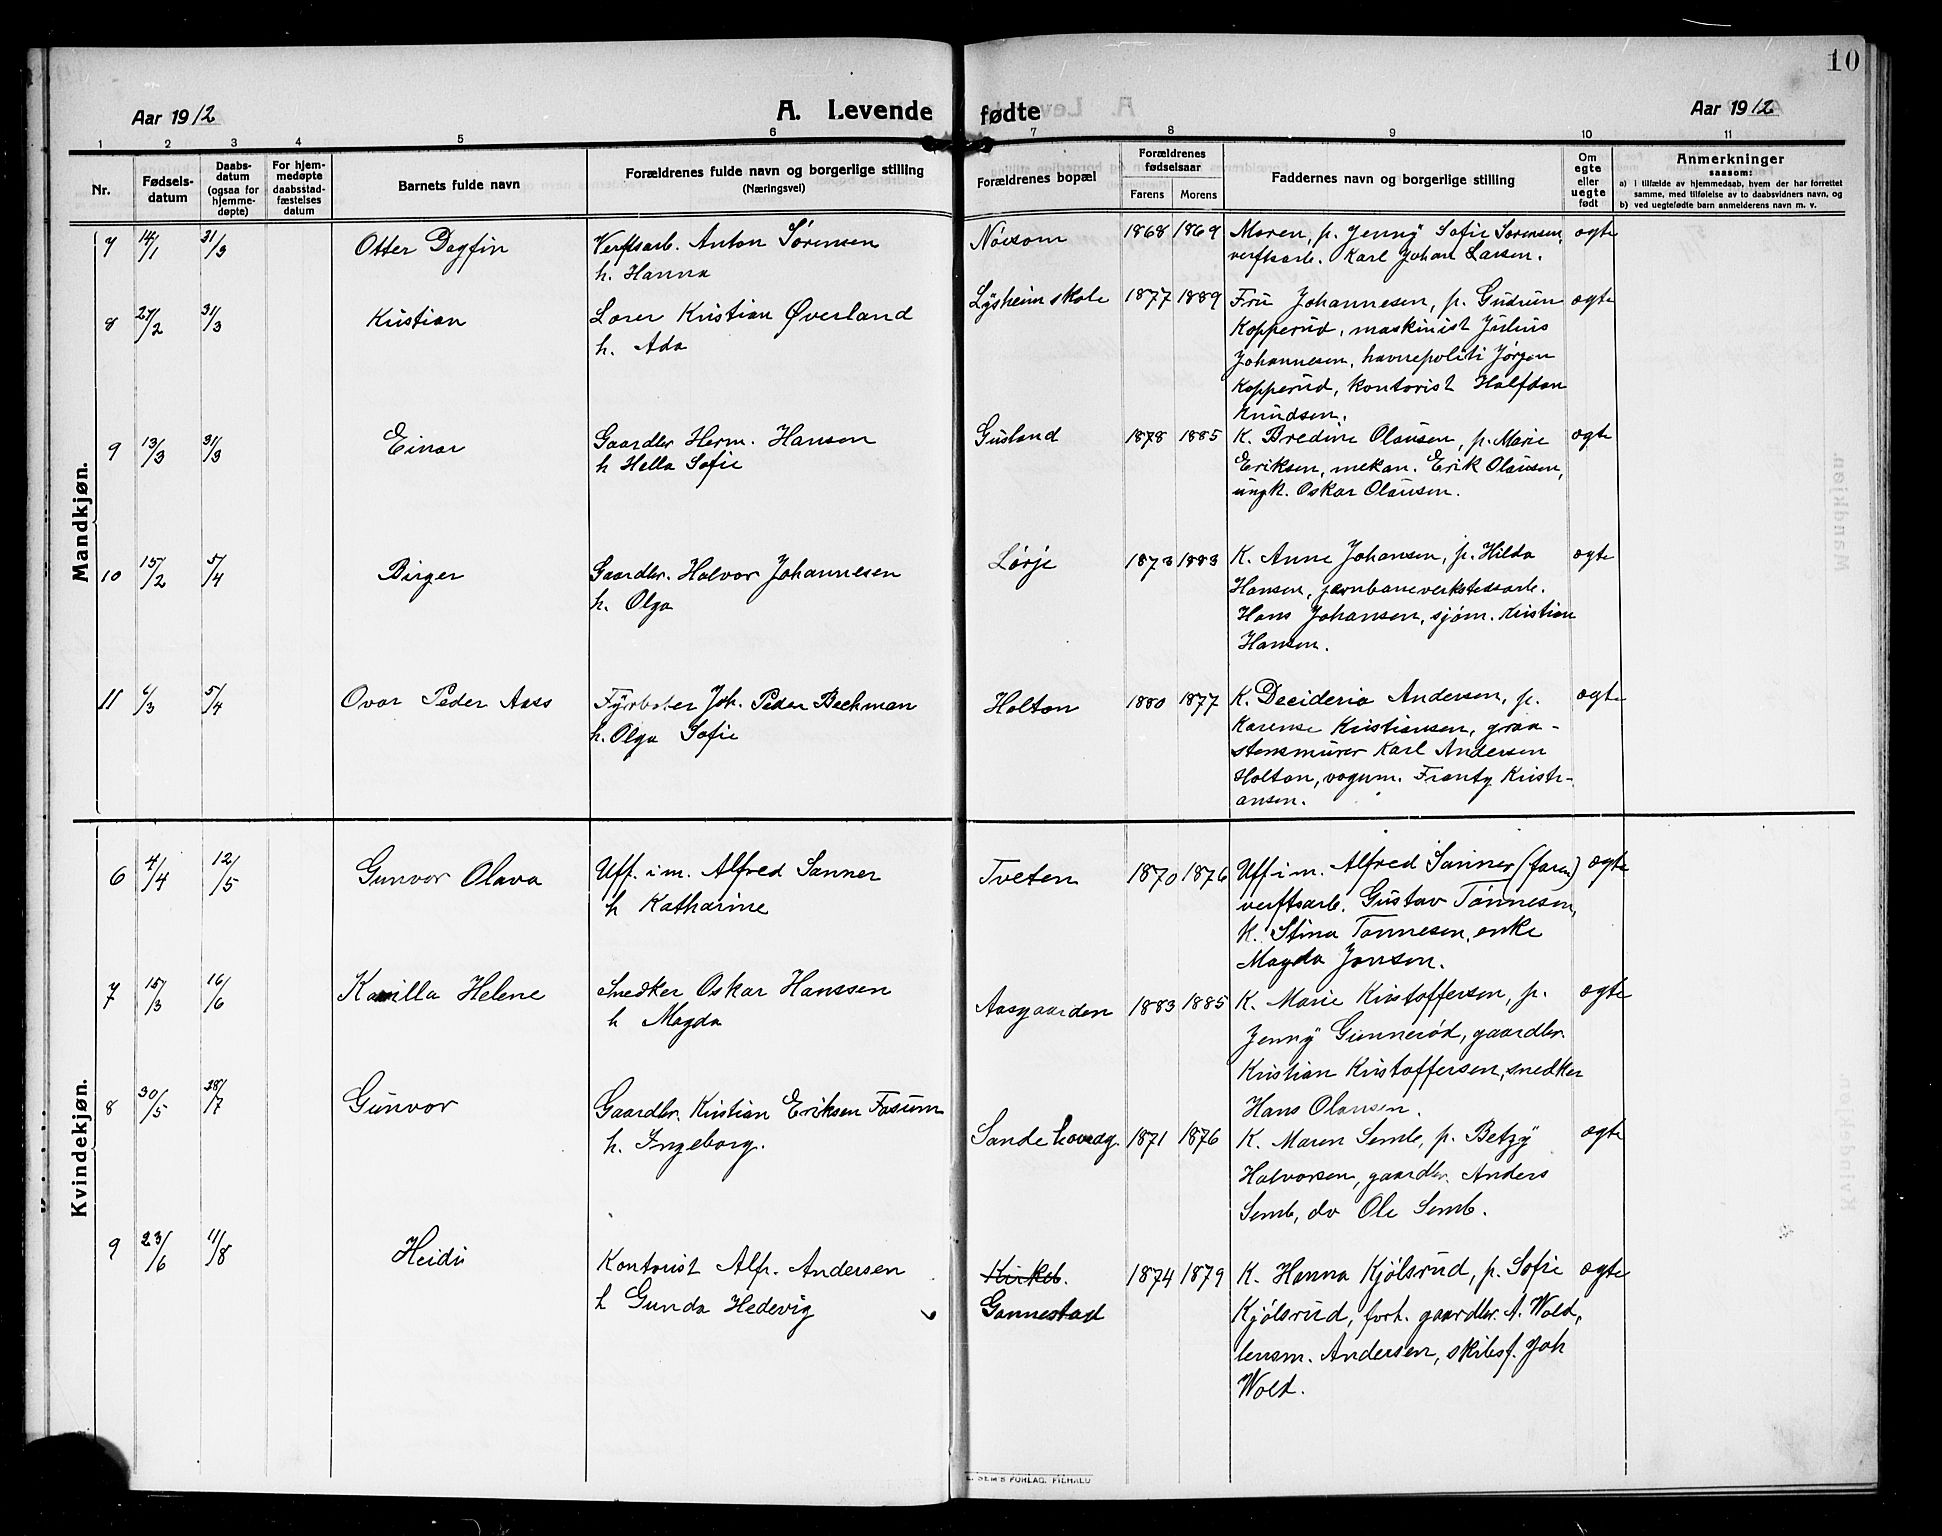 10
Aar 1912
A. Levende fødte
Aar 1912
1 2 3 4 5 6 7 8 9 10 11
Nr.
Fødsels-
datum
Daabs-
datum
(ogsaa for
hjemme-
døpte)
For hjem-
medøpte
daabsstad-
fæstelses
datum
Barnets fulde navn
Forældrenes fulde navn og borgerlige stilling
(Næringsvei)
Forældrenes bopæl
Forældrenes
fødselsaar
Farens Morens
Faddernes navn og borgerlige stilling
Om
egte
eller
uegte
født
Anmerkninger
saasom:
a) i tilfælde av hjemmedaab, hvem der har forrettet
samme, med tilføielse av to daabsvidners navn, og
b) ved uegtefødte barn anmelderens navn m. v.
Mandkjøn.
7 14/1 31/3 Otter Dagfin
Verftsarb. Anton Sørensen
h. Hanna
1868 1869
Maren, p. Jenny Sofie Sørensen,
verftsarb. Karl Johan Larsen.
ægte
8 27/2 31/3 Kristian
Lærer Kristian Øverland
h. Ada
Lysheim skole 1877 1889
Fru Johannesen, p. Gudrun
Kopperud, maskinist Julius
Johannesen, havnepoliti Jørgen
Kopperud, kontorist Halfdan
Knudsen.
ægte
9 13/3 31/3 Einar
Gaardbr. Herm. Hansen
h Hella Sofie
Gusland 1878 1885
K. Bredine Olausen, p. Marie
Eriksen, mekan. Erik Olausen,
ungk. Oskar Olausen.
ægte
10 15/2 5/4 Birger
Gaardbr. Halvor Johannesen
h. Olga
Lørje 1873 1883
K. Anne Johansen, p. Hilda
Hansen, jernbaneverkstedsarb.
Hans Johansen, sjøm. Kristian
Hansen.
ægte
11 6/3 5/4 Ovar Peder Aass
Fyrbøter Joh. Peder Beckman
h. Olga Sofie
Holtan 1880 1877
K. Decideria Andersen, p.
Karense Kristiansen, graa-
stensmurer Karl Andersen
Holtan, vognm. Frantz Kristi-
ansen.
ægte
Kvindekjøn.
6 4/4 12/5 Gunvor Olava
Uff. i m. Alfred Sanner
h Katharine
Tveten 1870 1876
Uff. i m. Alfred Sanner (faren)
verftsarb. Gustav Tønnesen,
K. Stina Tønnesen, enke
Magda Jensen.
ægte
7 15/3 16/6 Kamilla Helene
Snedker Oskar Hanssen
h Magda
Aasgaarden 1883 1885
K. Marie Kristoffersen, p.
Jenny Gunnerød, gaardbr.
Kristian Kristoffersen, snedker
Hans Olausen.
ægte
8 30/5 28/7 Gunvor
Gaardbr. Kristian Eriksen Fossum
h. Ingeborg.
1871 1876
K. Maren Semb, p. Betzy
Halvorsen, gaardbr. Anders
Semb, do Ole Semb.
ægte
9 23/6 11/8 Heidi
Kontorist Alfr. Andersen
h Gunda Hedevig
Kirkeb.
Gannestad
1874 1879
K. Hanna Kjølsrud, p. Sofie
Kjølsrud, forh. gaardbr. A. Wold,
lensm. Andersen, skibsf. Joh
Wold.
ægte
E. SEM'S FORLAG, F.HALD